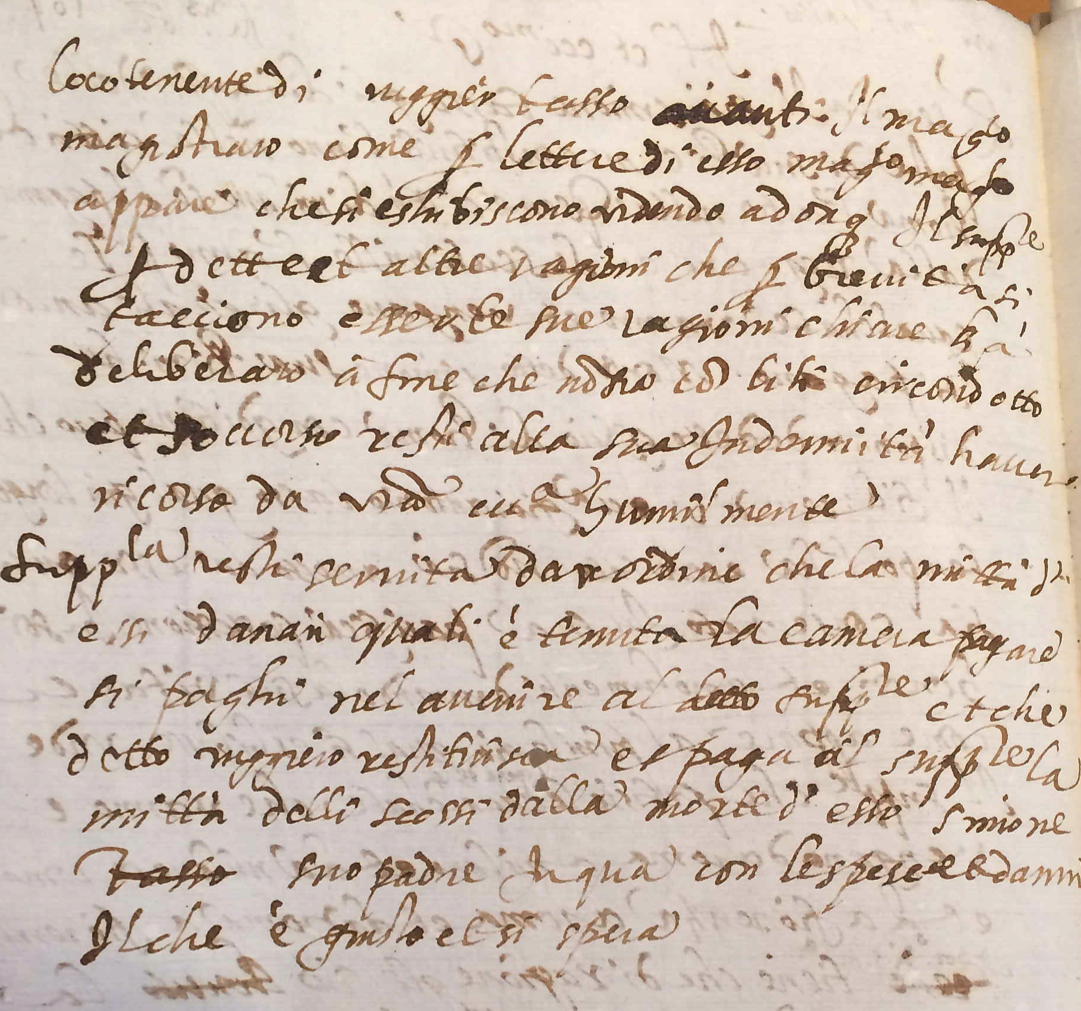 locotenente di ruggier tasso auanti Il mag.co
magistrato come p lettere di esso mag.co mag.to
appare che si eshibiscono vedendo adonq Il supp.te
p dette et altre ragioni che p breuità si
tacciono essere le sue ragioni chiare hà
deliberato à fine che non sio cō circondotto
et resti alla sua Indemnità hauer
ricorso da ecc.a humilmente
supp.la resti seruita dar ordine che la mittà di
essi danari quali è tenuta la camera pagare
si paghi nel auenire al detto supp.te et che
detto ruggiero restituisca et paga al supp.te la
mittà delli scossi dalla morte di esso simone
tasso suo padre In qua con le spese et danni
Il che è giusto et si spera